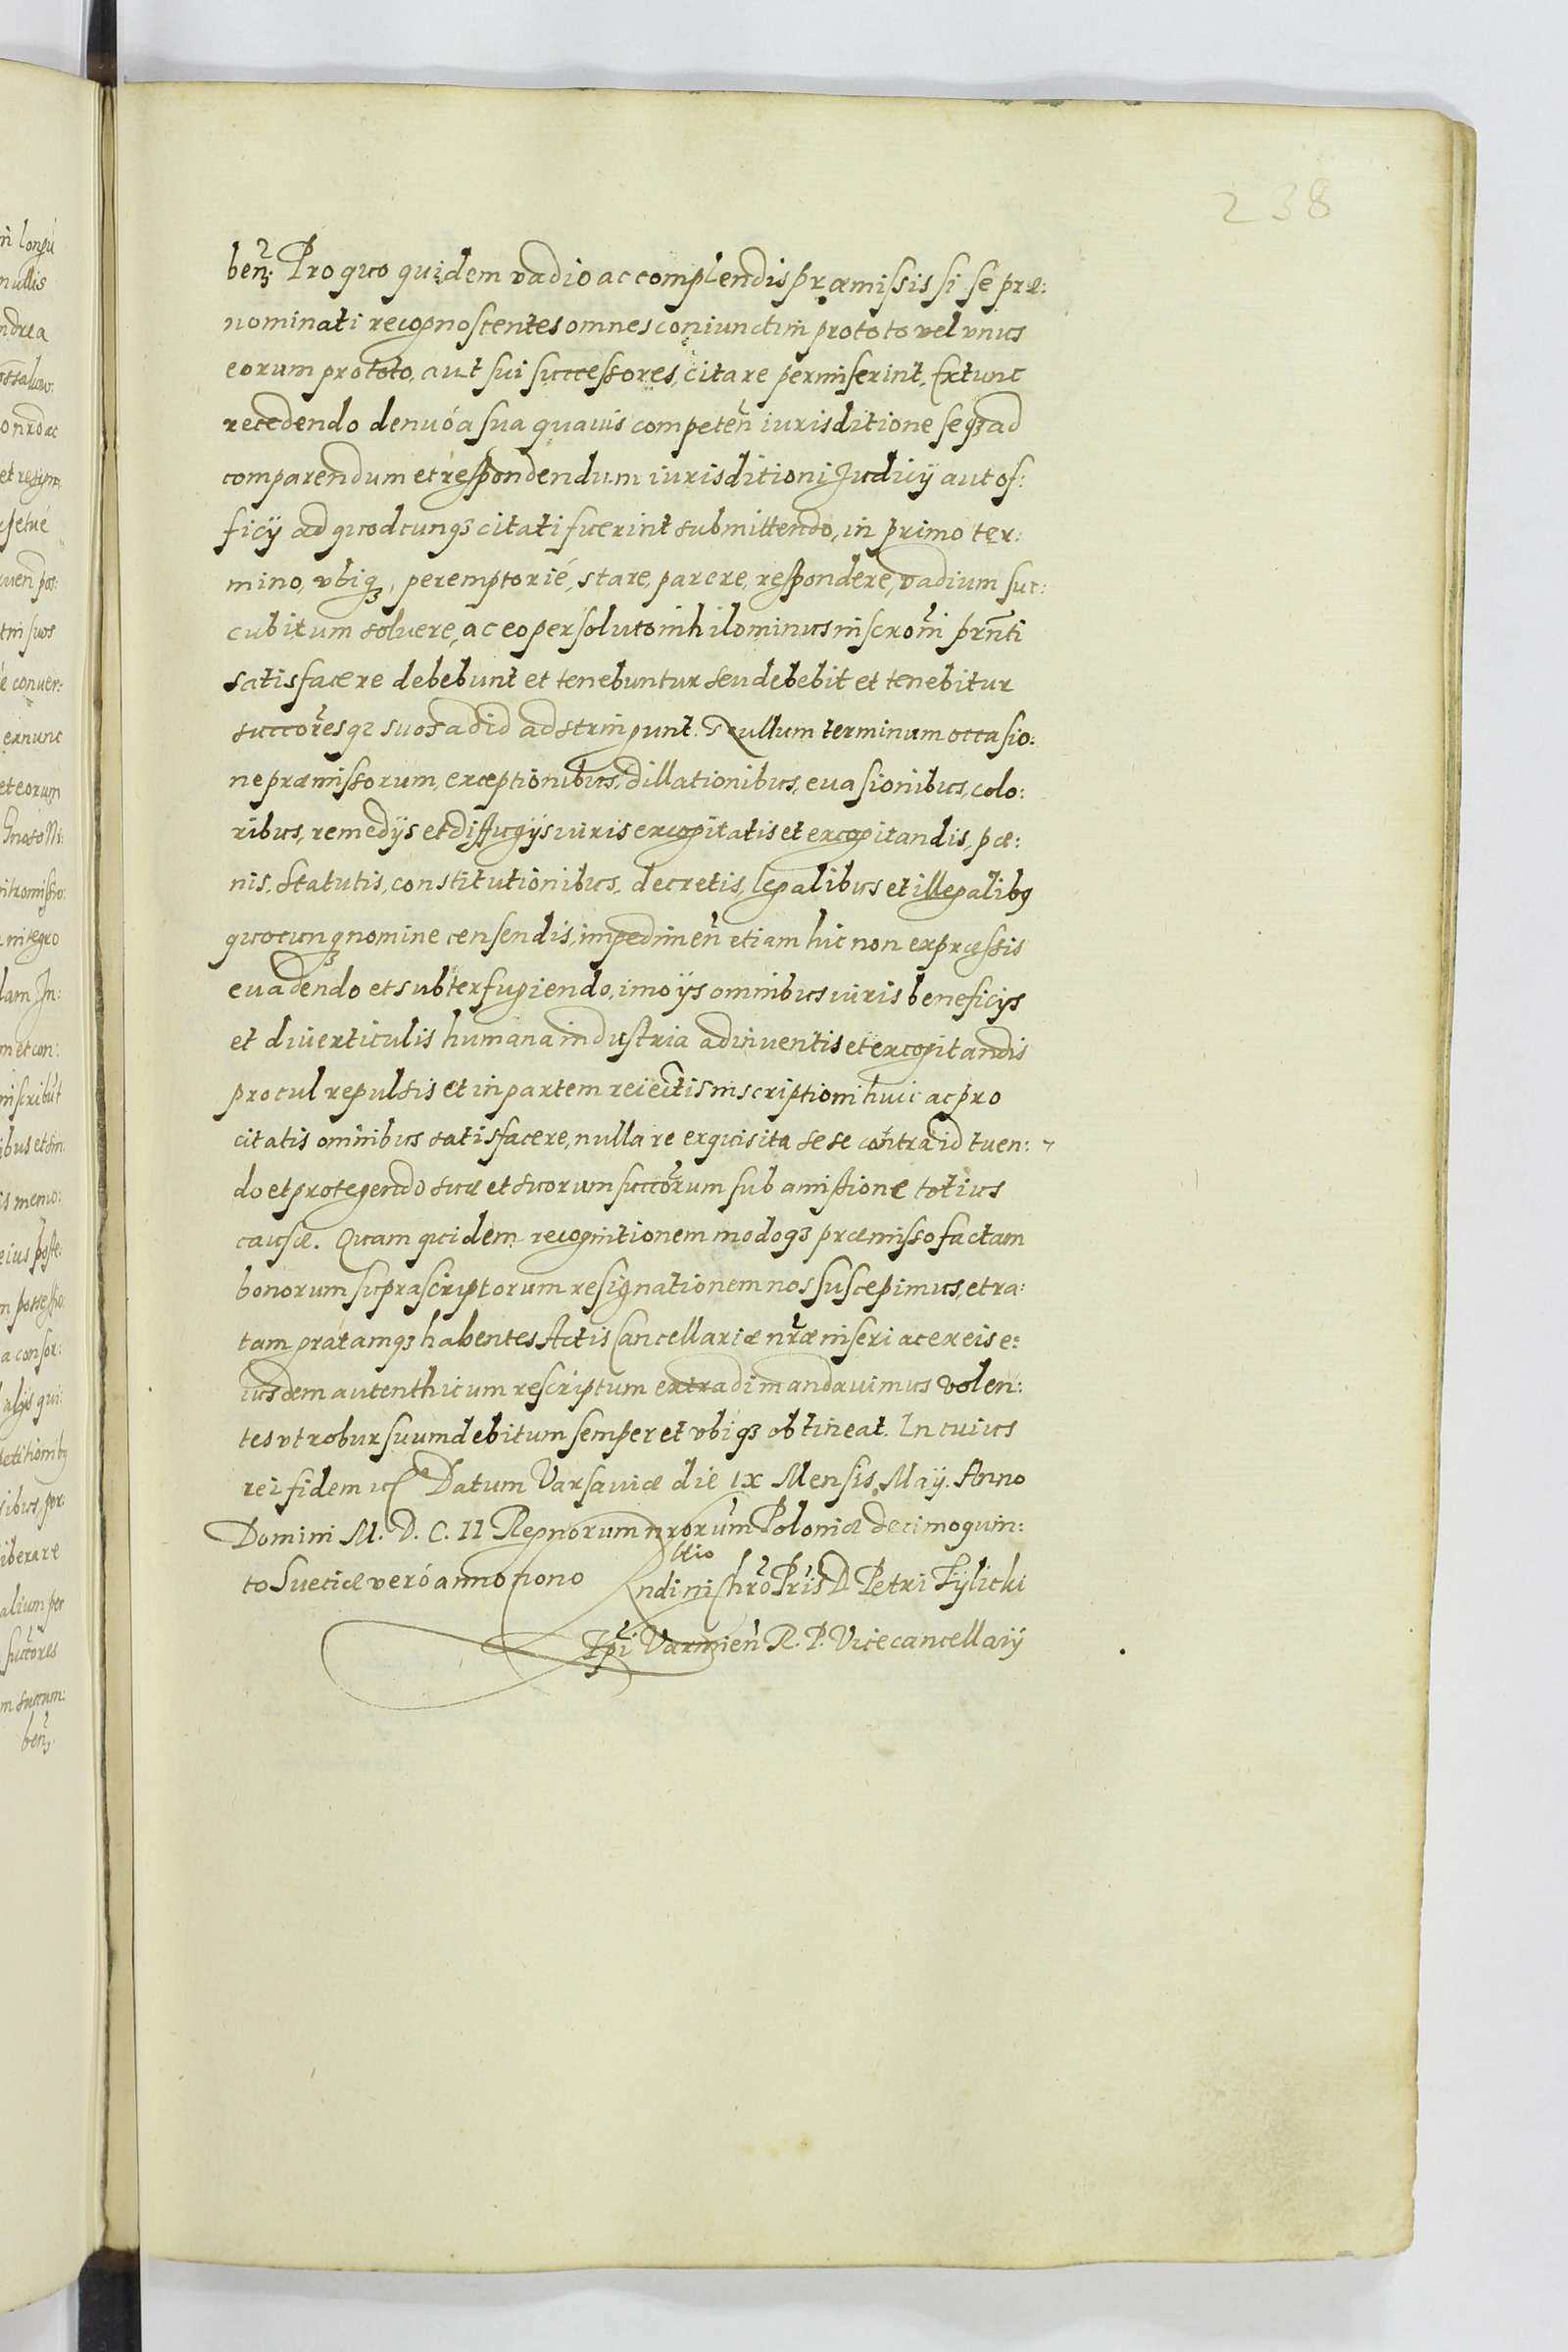 238
beñ; Pro quo quidem vadio ac complendis præmissis si se præ:
nominati recognoscentes omnes coniunctim pro toto vel vnus
eorum pro toto, aut sui successores, citare permiserint, Extunc
recedendo denuó a sua quauis competeñ iurisditione seqз ad
comparendum et respondendum iurisditioni Judicij aut of:
ficij ad quodcunqз citati fuerint submittendo, in primo ter:
mino, vbiqз, peremptorié, stare, parere, respondere, vadium suc:
cubitum soluere, ac eo persoluto nihilominus inscroñi prñti
satisfacere debebunt et tenebuntur seu debebit et tenebitur
succoresqз suos ad id adstringunt. Nullum terminum occasio:
ne præmissorum, exceptionibus, dillationibus, euasionibus, colo:
ribus, remedijs et diffugijs iuris excogitatis et excogitandis, pæ:
nis, statutis, constitutionibus, decretis, legalibus et illegalibꝫ
quocunqз nomine censendis, impedimeñ etiam hic non expræssis
euadendo et subterfugiendo, imo ijs omnibus iuris beneficijs
et diuerticulis humana industria adinuentis et excogitandis
procul repulsis et in partem reiectis inscriptioni huic ac pro
citatis omnibus satisfacere, nulla re exquisita sese contra id tuen:
do et protegendo suæ et suorum succorum sub amissione totius
causæ. Quam quidem recognitionem modoqз præmisso factam
bonorum suprascriptorum resignationem nos suscepimus, et ra:
tam gratamqз habentes Actis Cancellariæ nræ inseri ac ex eis e:
iusdem autenthicum rescriptum extradi mandauimus volen:
tes vt robur suum debitum semper et vbiqз obtineat. In cuius
rei fidem Datum Varsauiæ die IX Mensis Maij. Anno
Domini M. D. C. II Regnorum nrorum Poloniæ decimoquin:
to Sueciæ veró anno nono
Petri Tylicki
Varmieñ R. P. Vicecancellarij